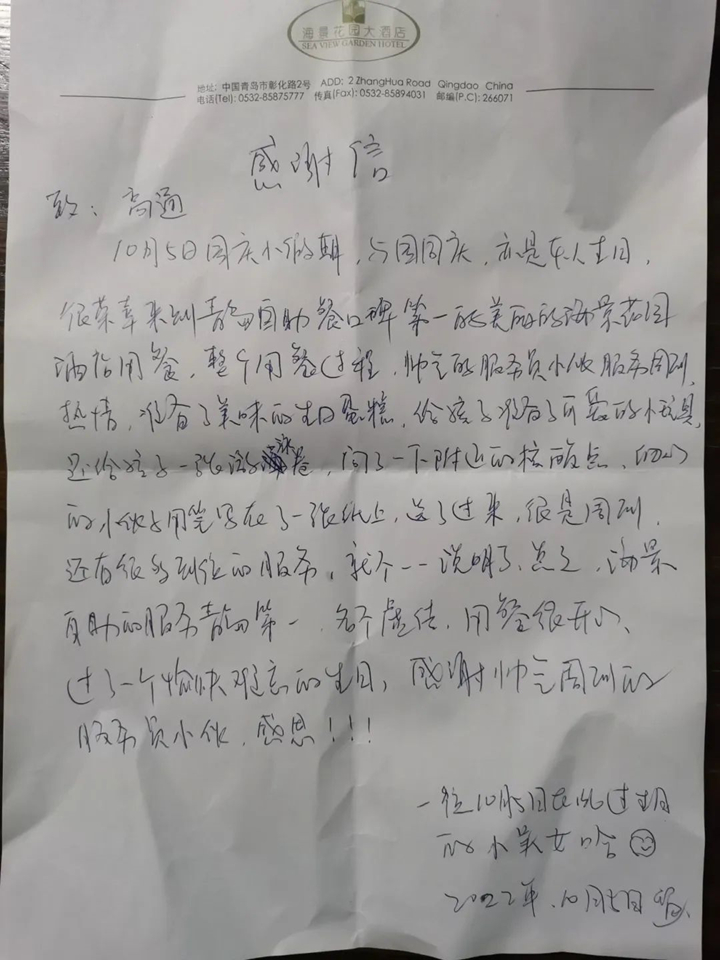 海景花园大酒店
SEA VIEW GARDEN HOTEL
地址: 中国青岛市彰化路2号 ADD: 2 ZhangHua Road Qingdao China
电话(Tel): 0532-85875777 传真(Fax): 0532-85894031 邮编(P.C): 266071
感谢信
致：高通
10月5日国庆小假期，与国同庆，亦是本人生日，
很荣幸来到青岛自助餐口碑第一的美丽的海景花园
酒店用餐，整个用餐过程，帅气的服务员小伙服务周到，
热情，准备了美味的生日蛋糕，给孩子准备了可爱的小玩具，
还给孩子一张游泳，问了一下附近的核酸点，
的小伙子用笔写在了一张纸上，送了过来，很是周到，
还有很多到位的服务，就不一一说明了，总之，海景
自助的服务青岛第一，名不虚传，用餐很开心、
过了一个愉快难忘的生日，感谢帅气周到的
服务员小伙，感恩！！！
一位10月5日在此过生日
的小美女哈
2022年.10月